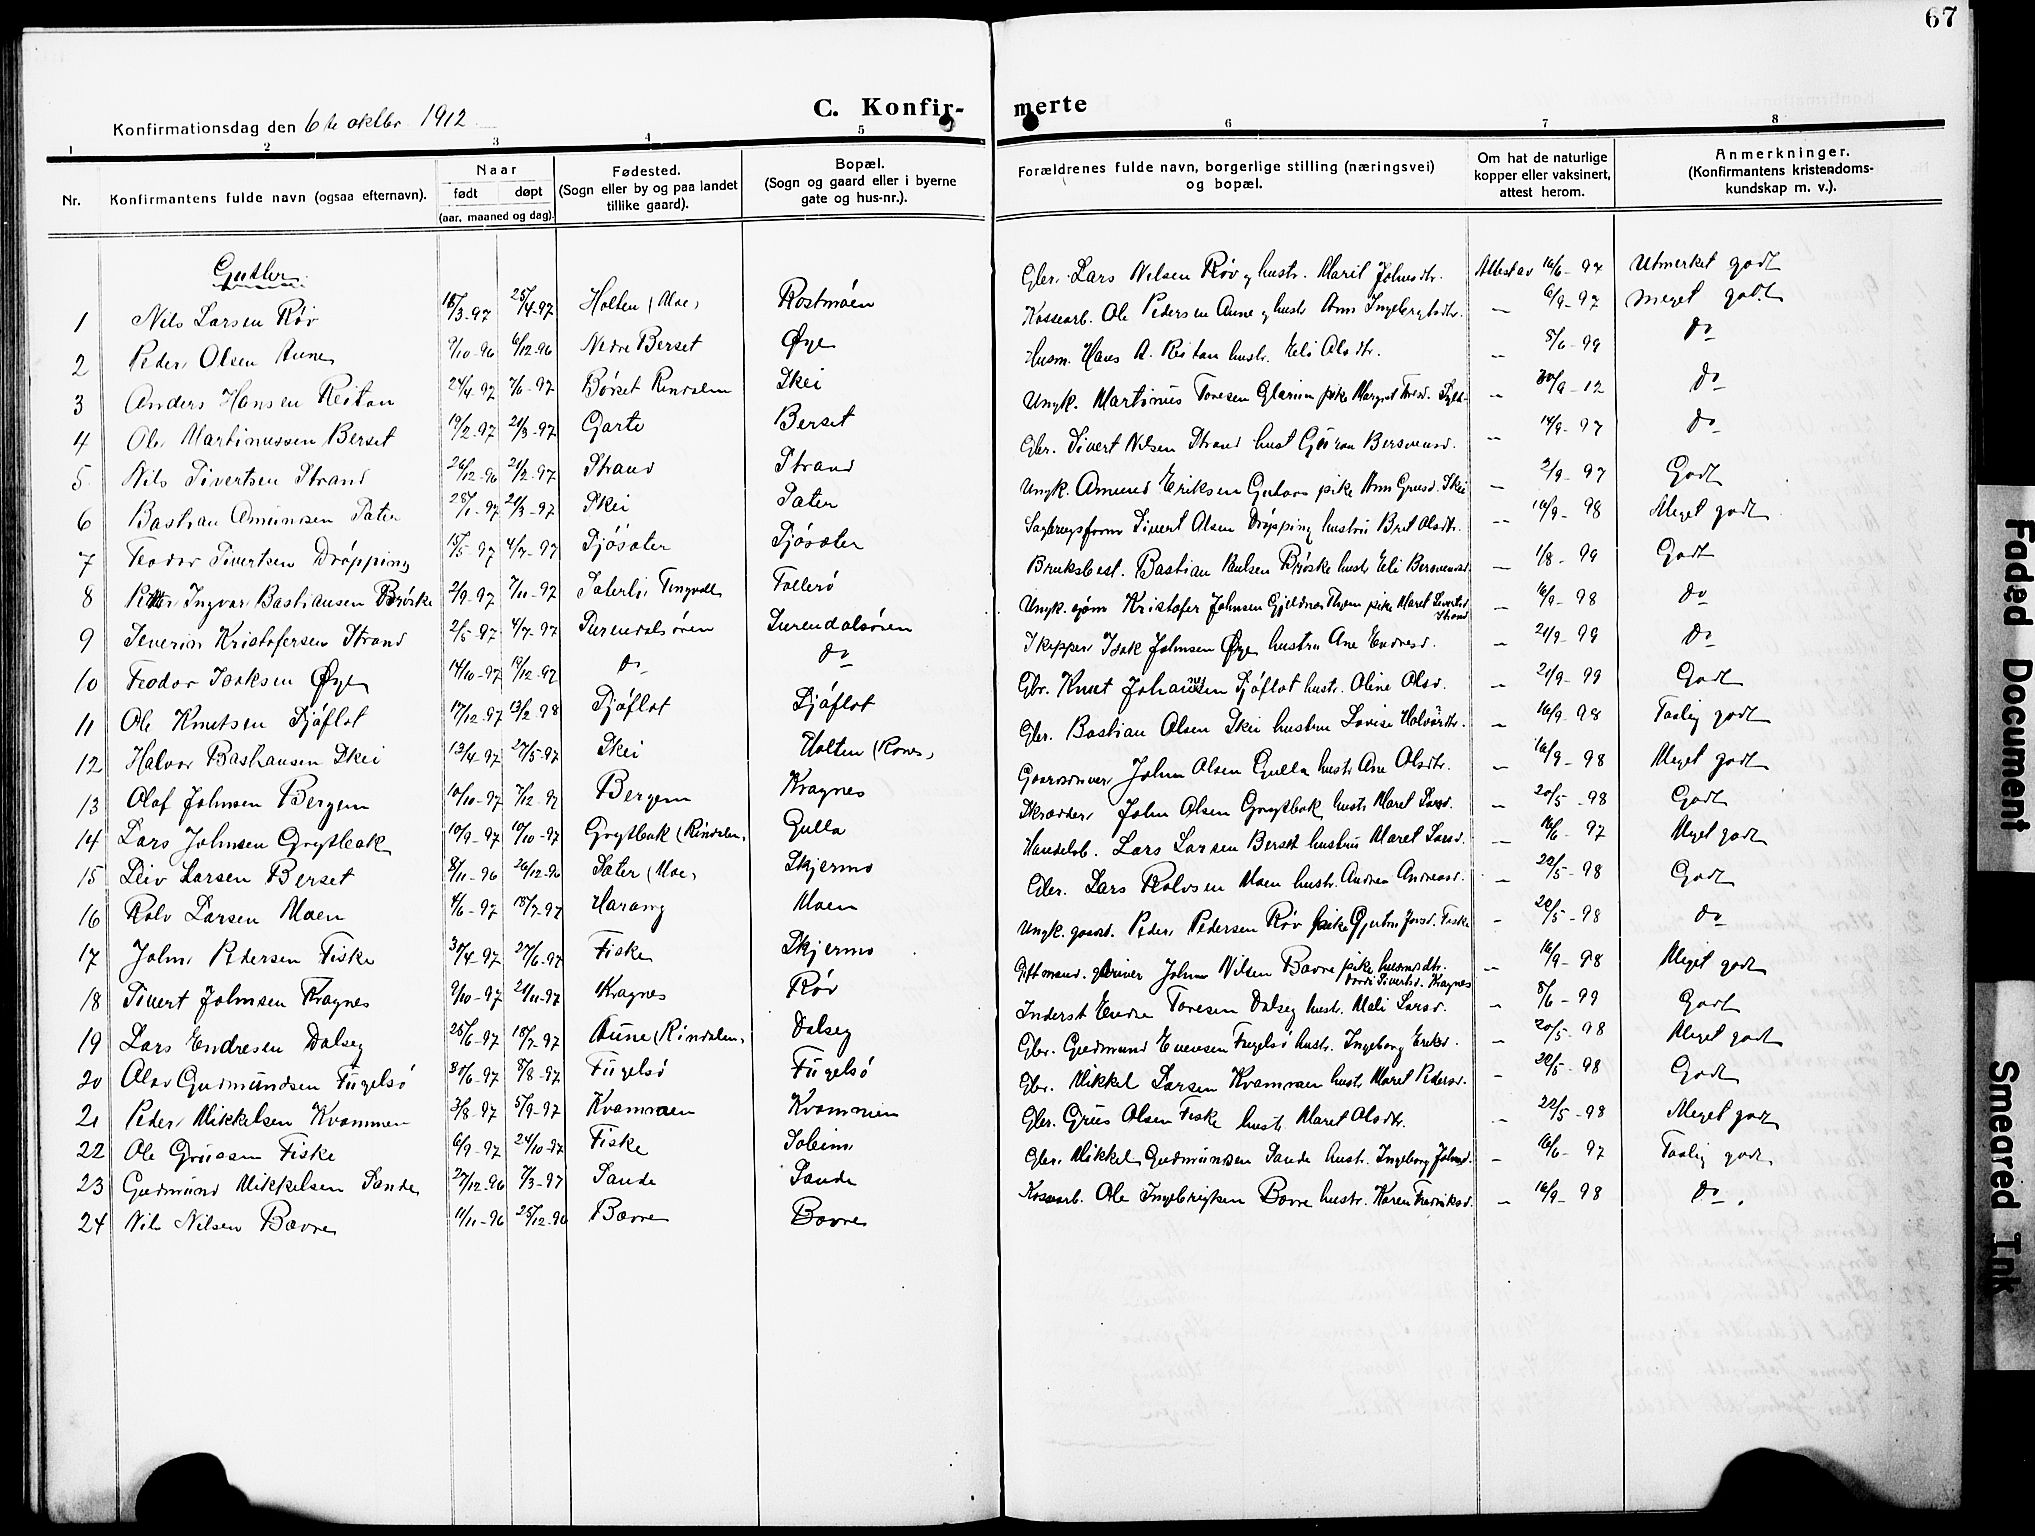 67
Konfirmationsdag den 6te oktbr. 1912
C. Konfir- merte
1 2 3 4 5 6 7 8
Nr. Konfirmantens fulde navn (ogsaa efternavn). Naar født døpt (aar, maaned og dag). Fødested. (Sogn eller by og paa landet tillike gaard). Bopæl. (Sogn og gaard eller i byerne gate og hus-nr.). Forældrenes fulde navn, borgerlige stilling (næringsvei) og bopæl. Om hat de naturlige kopper eller vaksinert, attest herom. Anmerkninger. (Konfirmantens kristendoms- kundskap m. v.).
Gutter
1 Nils Larsen Røv 15/3-97 25/4-97 Holten (Moe) Rostmoen Gbr. Lars Nilsen Røv og hustr. Marit Johnsdtr. Attest av 16/6-97 Utmerket godt
2 Peder Olsen Aune 9/10-96 6/12-96 Nedre Berset Øye Kassearb. Ole Pedersen Aune og hustr. Ann Ingebrigtsdtr. — 6/9-97 Meget godt
3 Anders Hansen Reitan 24/4-97 7/6-97 Børset Rindalen Skei Husm. Hans A. Reitan hustr. Eli Olsdtr. — 8/6-99 do
4 Ole Martinussen Berset 19/2-97 21/3-97 Garte Berset Ungk. Martinus Toresen Glærum pike Margret — 30/9-12 do
5 Nils Sivertsen Strand 26/12-96 21/2-97 Strand Strand Gbr. Sivert Nilsen Strand hust Guron Bersvensd. — 14/9-97 do
6 Bastian Amundsen Sæter 25/1-97 21/3-97 Skei Sæter Ungk. Amund Eriksen pike Ann Grusd. Skei — 2/9-97 Godt
7 Teodor Sivertsen Drøpping 15/5-97 4/7-97 Sjøsæter Sjøsæter Sagbrugsform Sivert Olsen Drøpping hustru Brit Olsdtr. — 16/9-98 Meget godt
8 Petter Ingvar Bastiansen Brøske 2/9-97 7/11-97 Sæterli Tingvoll Tollerø Bruksbest. Bastian Paulsen Brøske hustr Eli Bersvensd. — 1/8-99 Godt
9 Severin Kristofersen Strand 2/5-97 4/7-97 Surendalsøren Surendalsøren Ungk. sjøm Kristofer Johnsen Gjeldnes pike Maret Sivertsd. Strand — 16/9-98 do
10 Teodor Isaksen Øye 14/10-97 19/12-97 do do Skipper Isak Johnsen Øye hustru Ane Endresd. — 21/9-99 do
11 Ole Knutsen Sjøflot 17/12-97 13/2-98 Sjøflot Sjøflot Gbr. Knut Johansen Sjøflot hustr. Oline Olsd. — 21/9-99 Godt
12 Halvor Bastiansen Skei 13/4-97 27/5-97 Skei Holten (Ranes) Gbr. Bastian Olsen Skei hustru Lovise Halvordtr. — 16/9-98 Taalig godt
13 Olaf Johnsen Bergem 10/10-97 7/12-97 Bergem Kragnes Gaardsdriver John Olsen Gulla hustr. Ane Olsdtr. — 16/9-98 Meget godt
14 Lars Johnsen Grytbak 10/9-97 10/10-97 Grytbak (Rindalen) Gulla Skrædder John Olsen Grytbak hustr. Maret Larsd. — 20/5-98 Godt
15 Leiv Larsen Berset 8/11-96 26/12-96 Sæter (Moe) Skjermo Handelsb. Lars Larsen Berset hustru Maret Larsd. — 16/6-97 Meget godt
16 Rolv Larsen Moen 4/6-97 18/7-97 Harang Moen Gbr. Lars Rolvsen Moen hustr. Andrea Andreasd. — 20/5-98 Godt
17 John Pedersen Fiske 30/4-97 27/6-97 Fiske Skjermo Ungk. Peder Pedersen Røv pike Gjertru Jonsd. Fiske — 20/5-98 do
18 Sivert Johnsen Kragnes 9/10-97 21/11-97 Kragnes Røv Giftmand. John Nilsen Bævre pike husmdtr. Sivertsd. Kragnes — 16/9-98 Meget godt
19 Lars Endresen Dalseg 25/6-97 18/7-97 Aune (Rindalen) Dalseg Inderst Endre Toresen Dalseg hustr. Mali Larsd. — 8/6-99 Godt
20 Olav Gudmundsen Fugelsø 30/6-97 8/8-97 Fugelsø Fugelsø Gbr. Gudmund Evensen Fugelsø hustr. Ingeborg Eriksd. — 20/5-98 Meget godt
21 Peder Mikkelsen Kvammen 3/8-97 5/9-97 Kvammen Kvammen Gbr. Mikkel Larsen Kvammen hustr Maret Pedersd. — 20/5-98 Godt
22 Ole Gruesen Fiske 6/9-97 24/10-97 Fiske Soleim Gbr. Grus Olsen Fiske hustr. Maret Olsdtr. — 22/5-98 Meget godt
23 Gudmund Mikkelsen Sande 27/12-96 7/3-97 Sande Sande Gbr. Mikkel Gudmundsen Sande hustr. Ingeborg Johnsd. — 16/6-97 Taalig godt
24 Nils Nilsen Bævre 11/11-96 25/12-96 Bævre Bævre Ole Ingebrigtsen Bævre hustr. Karen Fredriksd. — 16/9-98 do
Faded Document
Smeared Ink